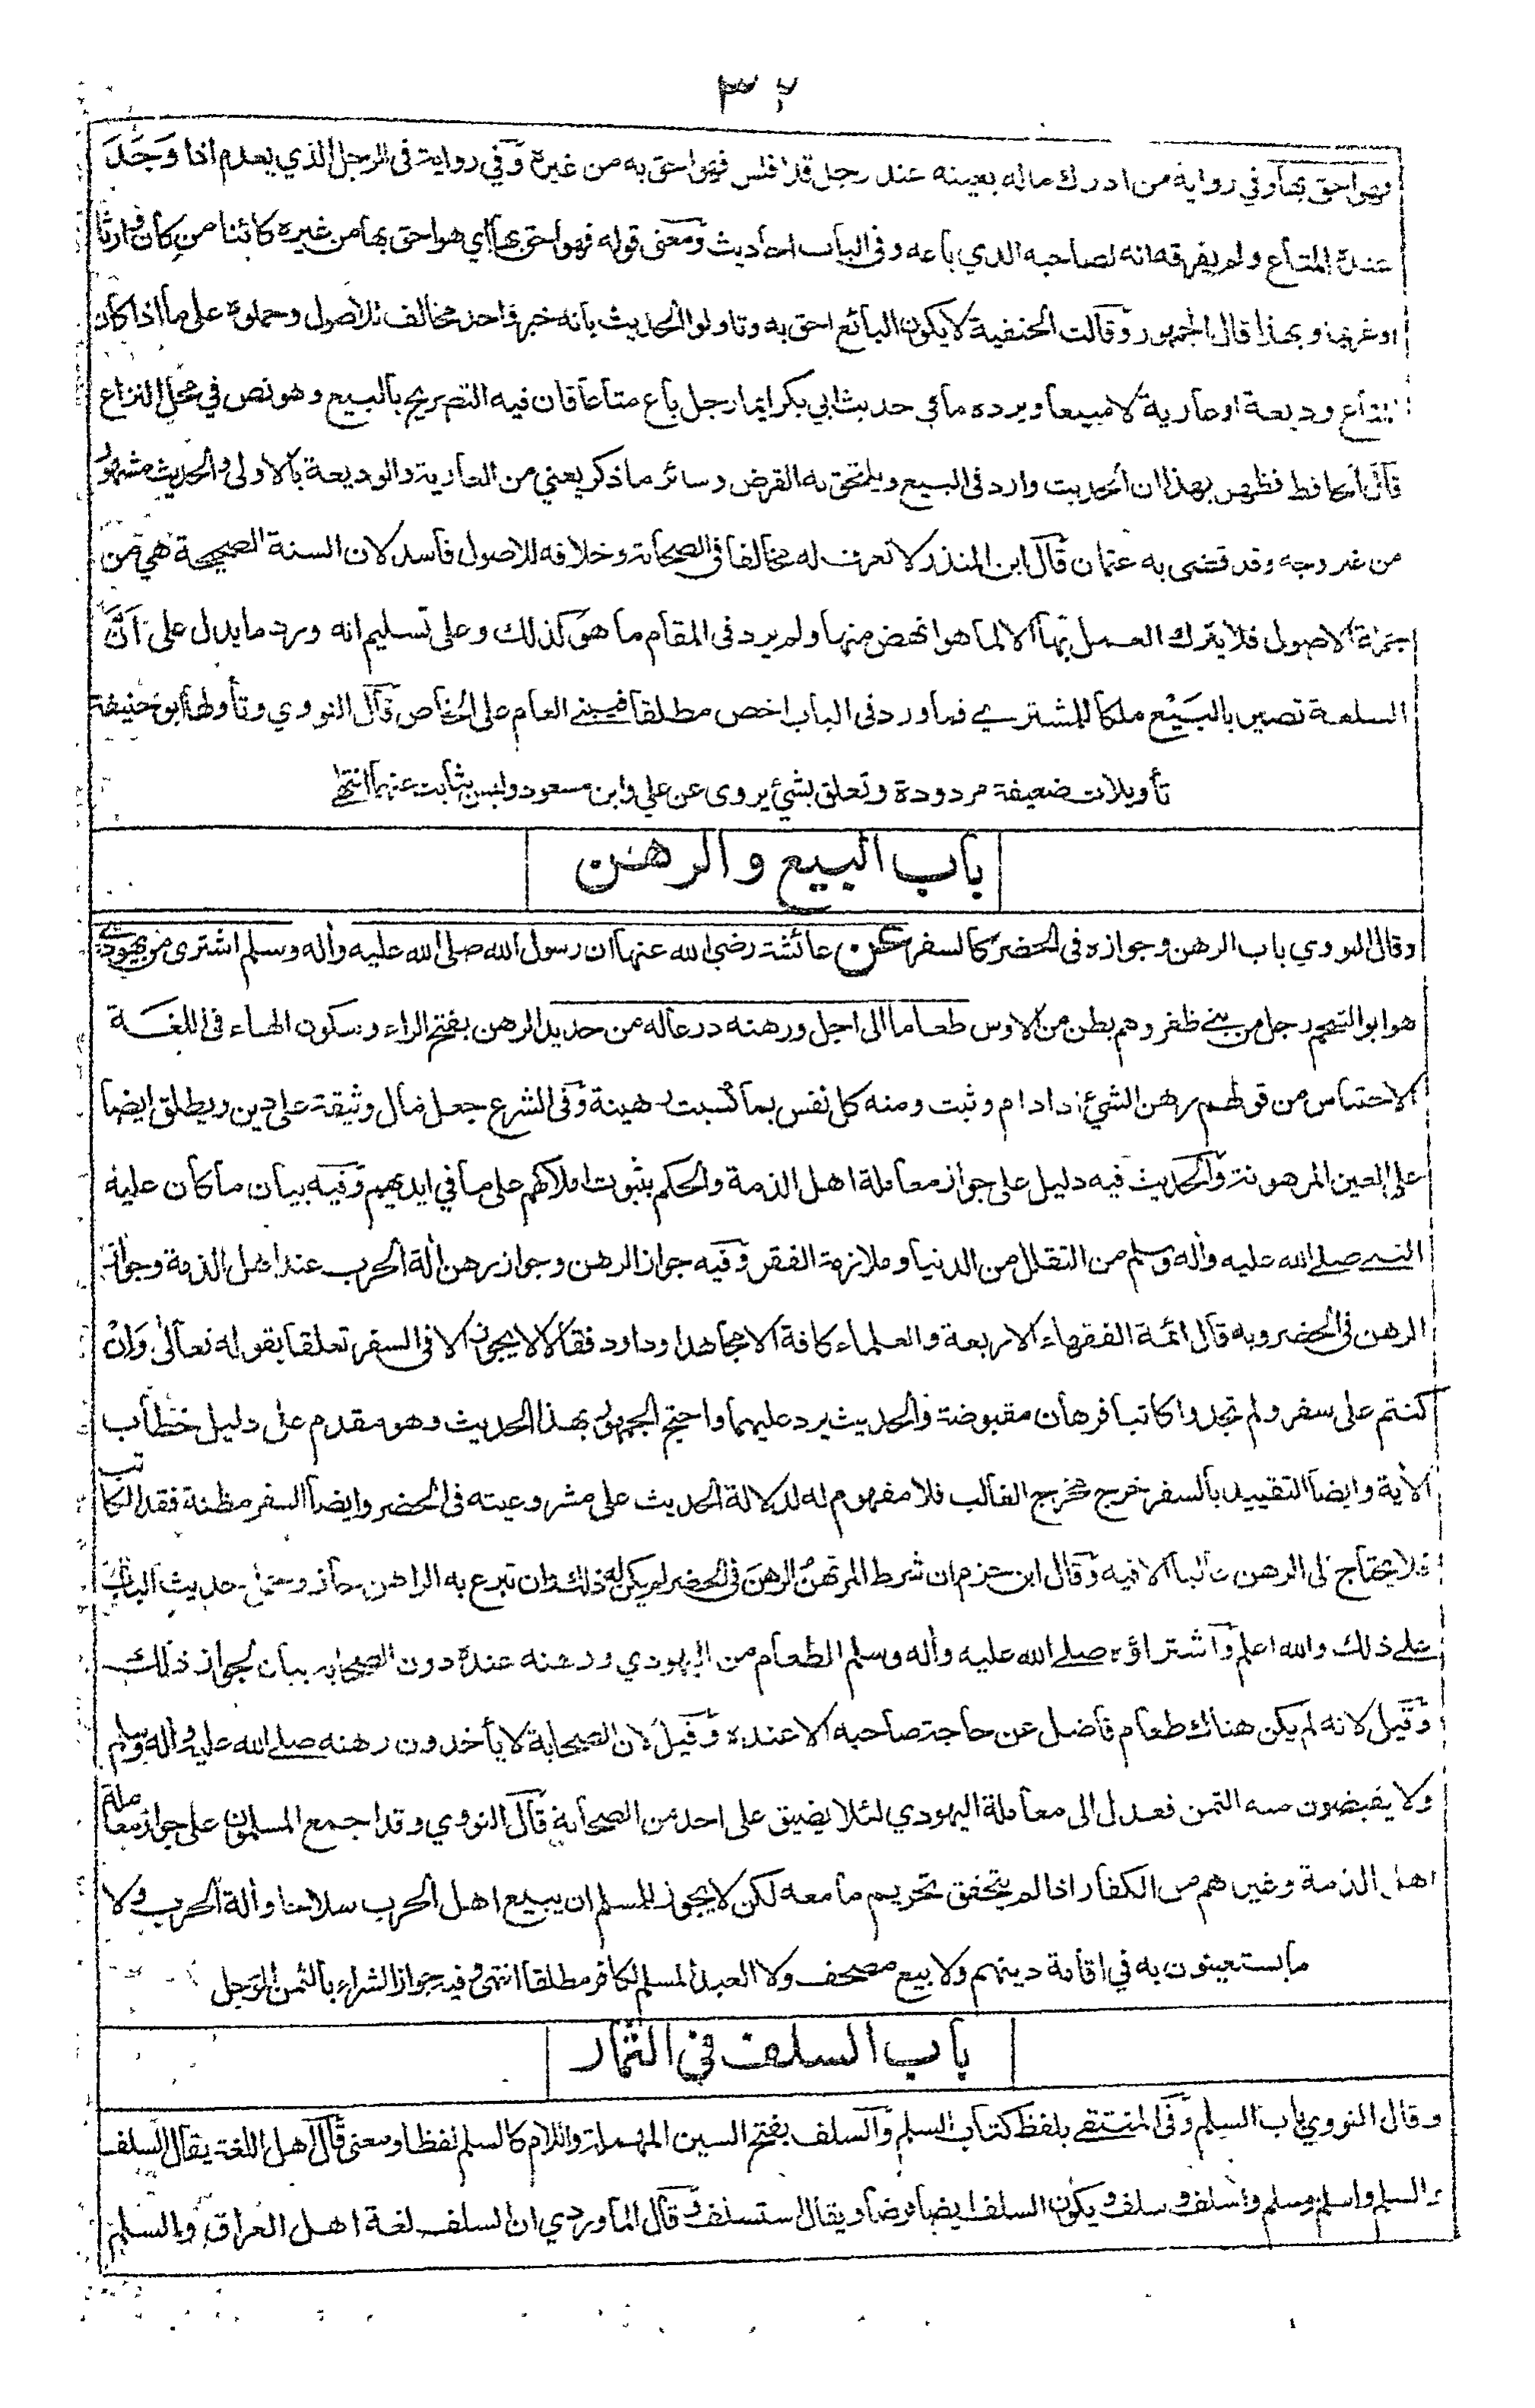 ٣٢
فهو احق بها وفي رواية من ادرك ماله بعينه عند رجل قد افلس فهو احق به من غيره وفي رواية في الرجل الذي يعدم اذا وَجَدَ
عنده المتاع ولم يفرقه انه لصاحبه الذي باعه وفي الباب احاديث ومعنى قوله فهو احق بها اي هو احق بها من غيره كائنا من كان وارثا
او غريما وبهذا قال الجمهور وقالت الحنفية لا يكون البائع احق به وتاولوا الحديث بانه خبر واحد مخالف للاصول وحملوه على ما اذا كان
المتاع وديعة او عارية لا مبيعا ويرده ما في حديث ابي بكر ايما رجل باع متاعا فان فيه التصريح بالبيع وهو نص في محل النزاع
قال الحافظ فظهر بهذا ان الحديث وارد في البيع ويلتحق به القرض وسائر ما ذكر يعني من العارية والوديعة بالاولى والحديث مشهور
من غير وجه وقد قضى به عثمان قال ابن المنذر لا نعرف له مخالفا في الصحابة وخلافه للاصول فاسد لان السنة الصحيحة هي من
جملة الاصول فلا يترك العمل بها الا لما هو انهض منها ولم يرد في المقام ما هو كذلك وعلى تسليم انه ورد ما يدل على اَنَّ
السلعة تصير بالبَيْع ملكا للمشتري فما ورد في الباب اخص مطلقا فيبنى العام على الخاص قال النووي وتأولها ابو حنيفة
تأويلات ضعيفة مردودة وتعلق بشيء يروى عن علي وابن مسعود وليس بثابت عنهما انتهى
باب البيع والرهن
وقال النووي باب الرهن وجوازه في الحضر كالسفر عن عائشة رضي الله عنها ان رسول الله صلى الله عليه وآله وسلم اشترى من يهودي
هو ابو الشحم رجل من بني ظفر وهم بطن من الاوس طعاما الى اجل ورهنه درعا له من حديد الرهن بفتح الراء وسكون الهاء في اللغة
الاحتباس من قولهم رهن الشيء اذا دام وثبت ومنه كل نفس بما كسبت رهينة وفي الشرع جعل مال وثيقة على دين ويطلق ايضا
على العين المرهونة والحديث فيه دليل على جواز معاملة اهل الذمة والحكم بثبوت املاكهم على ما في ايديهم وفيه بيان ما كان عليه
النبي صلى الله عليه وآله وسلم من التقلل من الدنيا وملازمة الفقر وفيه جواز الرهن وجواز رهن آلة الحرب عند اهل الذمة وجواز
الرهن في الحضر وبه قال ائمة الفقهاء الاربعة والعلماء كافة الا مجاهدا وداود فقالا لا يجوز الا في السفر تعلقا بقوله تعالى وَاِنْ
كنتم على سفر ولم تجدوا كاتبا فرهان مقبوضة والحديث يرد عليهما واحتج الجمهور بهذا الحديث وهو مقدم على دليل خطاب
الآية وايضا التقييد بالسفر خرج مخرج الغالب فلا مفهوم له لدلالة الحديث على مشروعيته في الحضر وايضا السفر مظنة فقد الكاتب
فلا يحتاج الى الرهن غالبا الا فيه وقال ابن حزم ان شرط المرتهن الرهن في الحضر لم يكن له ذلك وان تبرع به الراهن جاز وحمل حديث الباب
على ذلك والله اعلم واشتراؤه صلى الله عليه وآله وسلم الطعام من اليهودي ورهنه عنده دون الصحابه بيان لجواز ذلك
وقيل لانه لم يكن هناك طعام فاضل عن حاجة صاحبه الا عنده وقيل لان الصحابة لا يأخذون رهنه صلى الله عليه وآله وسلم
ولا يقبضون منه الثمن فعدل الى معاملة اليهودي لئلا يضيق على احد من الصحابة قال النووي وقد اجمع المسلمون على جواز معاملة
اهل الذمة وغيرهم من الكفار اذا لم يتحقق تحريم ما معه لكن لا يجوز للمسلم ان يبيع اهل الحرب سلاحا وآلة الحرب ولا
ما يستعينون به في اقامة دينهم ولا بيع مصحف ولا العبد المسلم لكافر مطلقا انتهى وفيه جواز الشراء بالثمن المؤجل
باب السلف في الثمار
وقال النووي باب السلم وفي المنتقى بلفظ كتاب السلم والسلف بفتح السين المهملة واللام كالسلم لفظا ومعنى قال اهل اللغة يقال السلف
والسلم واسلم وسلم واسلف وسلف ويكون السلف ايضا قرضا ويقال ستسلف وقال الماوردي ان السلف لغة اهل العراق والسلم